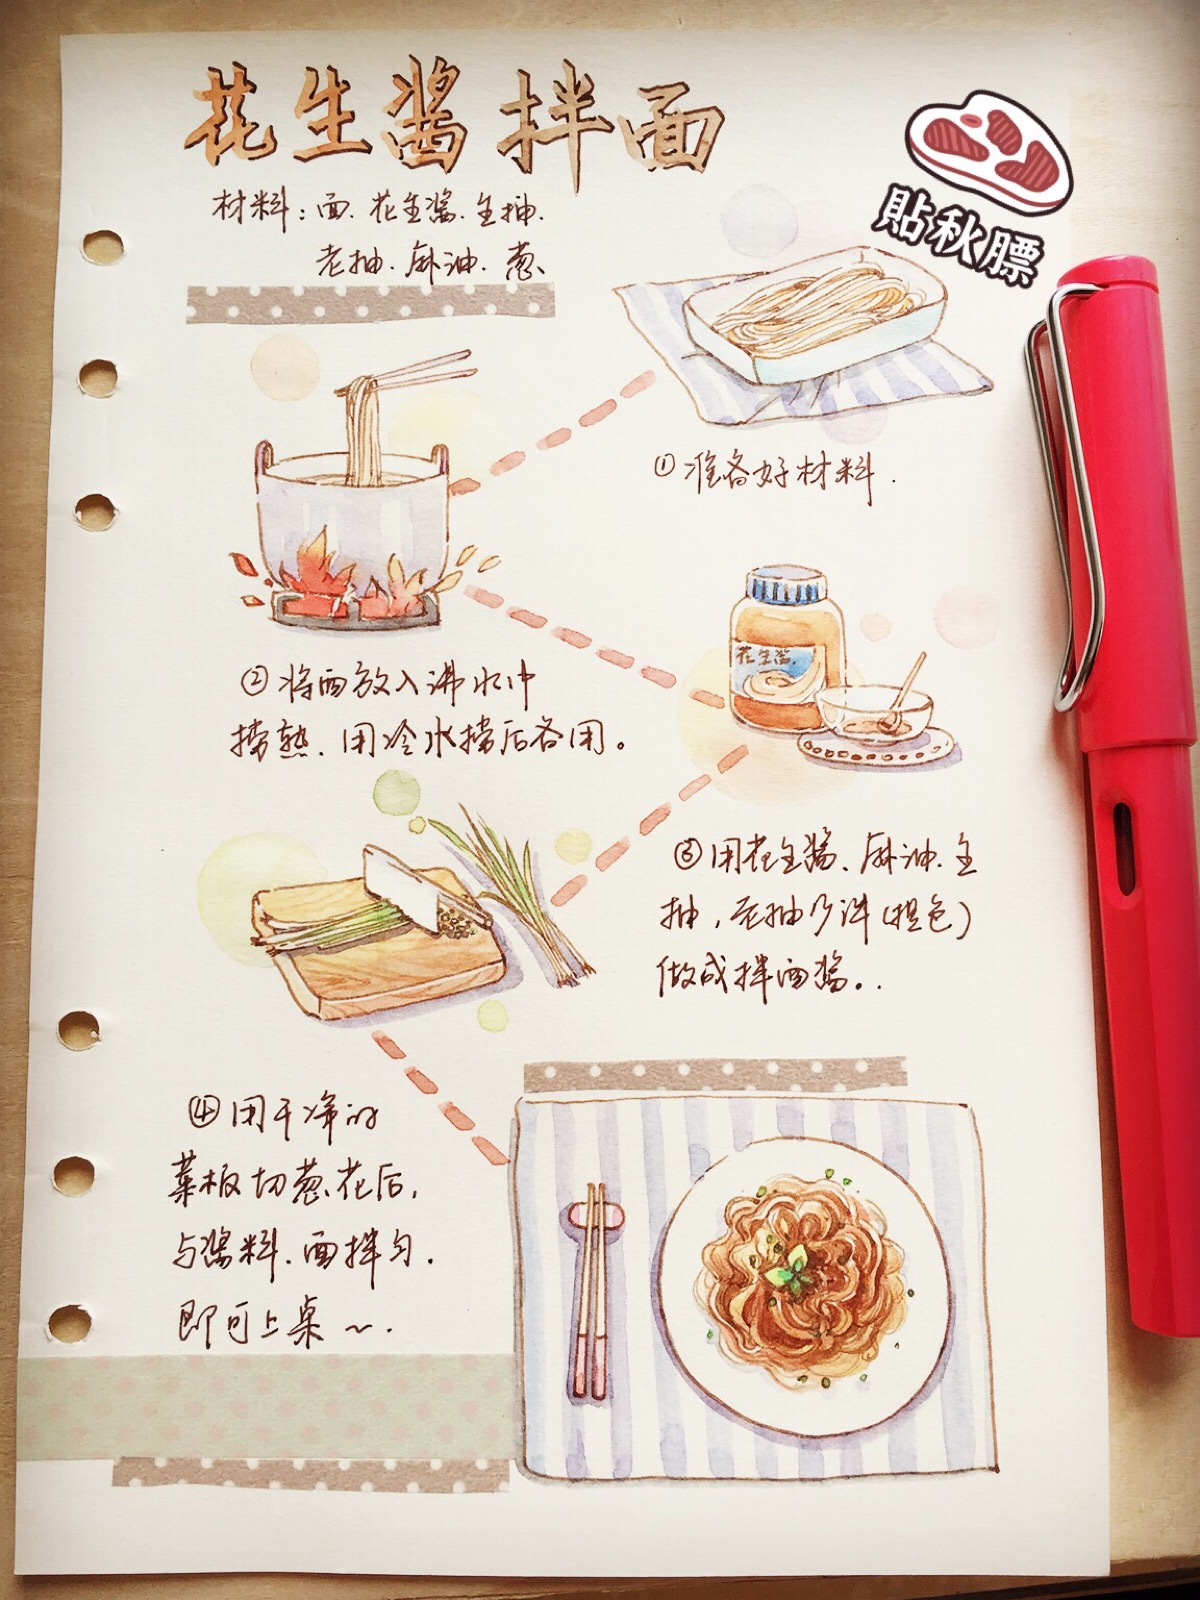 花生酱拌面
材料：面、花生酱、生抽、
老抽、麻油、葱、
貼秋膘
①准备好材料.
②将面放入沸水中
捞熟、用冷水捞后备用。
花生酱.
③用花生酱、麻油、生
抽，老抽少许(提色)
做成拌面酱。.
④用干净的
菜板切葱花后,
与酱料、面拌匀.
即可上桌~.